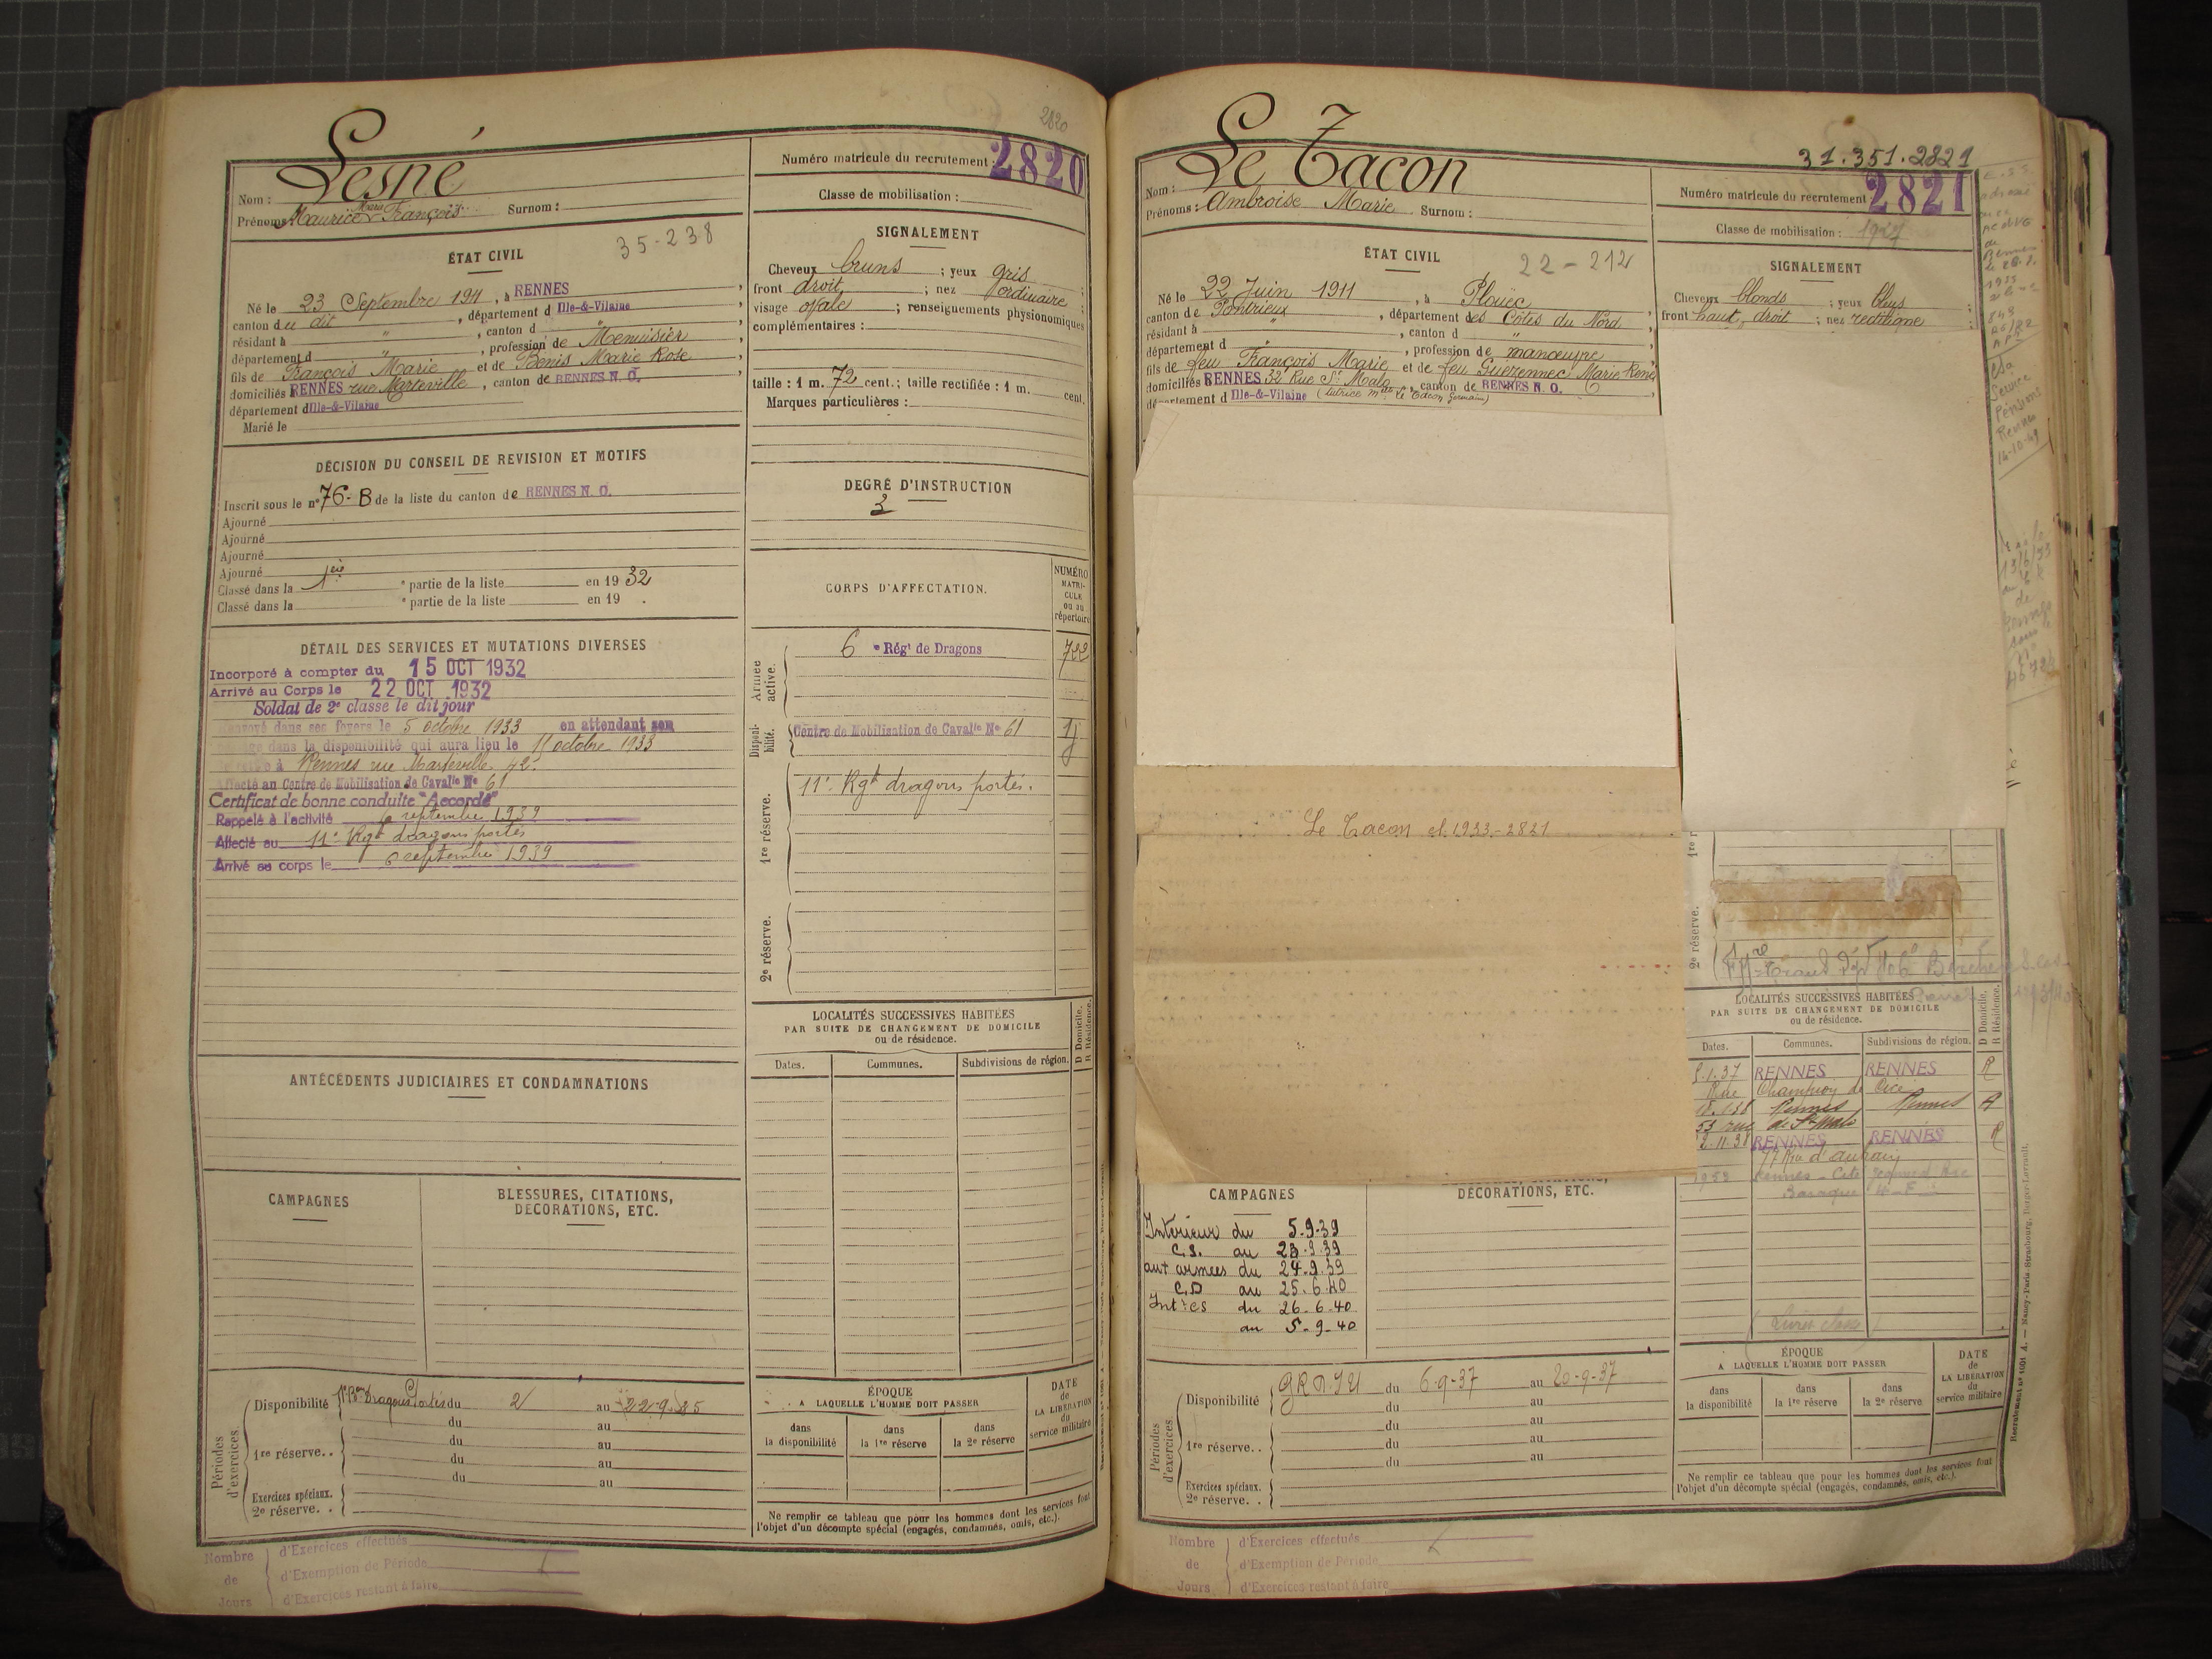 2820
Lesné
Nom :
Prénoms : Maurice Marie François Surnom :
Numéro matricule du recrutement : 2820
Classe de mobilisation :
ÉTAT CIVIL
35-238
Né le 23 Septembre 1911, à RENNES,
canton du dit, département d Ille-&-Vilaine
résidant à ", canton d ",
département d ", profession de Menuisier
fils de François Marie et de Benis Marie Rose,
domiciliés RENNES rue Marteville, canton de RENNES N. O.
département d Ille-&-Vilaine
Marié le
SIGNALEMENT
Cheveux bruns ; yeux gris ;
front droit ; nez ordinaire ;
visage ovale ; renseignements physionomiques
complémentaires :
taille : 1 m. 72 cent. ; taille rectifiée : 1 m. cent.
Marques particulières :
DÉCISION DU CONSEIL DE REVISION ET MOTIFS
Inscrit sous le n° 76-B de la liste du canton de RENNES N. O.
Ajourné
Ajourné
Ajourné
Ajourné
Classé dans la 1ère e partie de la liste en 19 32
Classé dans la e partie de la liste en 19 .
DEGRÉ D'INSTRUCTION
3
DÉTAIL DES SERVICES ET MUTATIONS DIVERSES
Incorporé à compter du 15 OCT 1932
Arrivé au Corps le 22 OCT 1932
Soldat de 2e classe le dit jour
dans ses foyers le 5 octobre 1933 en attendant son
dans la disponibilité qui aura lieu le 15 octobre 1933
à Rennes rue Marteville 42.
Affecté au Centre de Mobilisation de Cavalie No 61
Certificat de bonne conduite "Accordé"
Rappelé à l'activité 6 septembre 1939
Affecté au 11e Rgt dragons portés
Arrivé au corps le 6 septembre 1939
CORPS D'AFFECTATION.
NUMÉRO MATRICULE ou au répertoire
Armée active.
6 e Régt de Dragons 722
Disponibilité.
Centre de Mobilisation de Cavalie No 61
1re réserve.
11e Rgt dragons portés.
2e réserve.
ANTÉCÉDENTS JUDICIAIRES ET CONDAMNATIONS
LOCALITÉS SUCCESSIVES HABITÉES
PAR SUITE DE CHANGEMENT DE DOMICILE
ou de résidence.
D Domicile.
R Résidence.
Dates. Communes. Subdivisions de région.
CAMPAGNES
BLESSURES, CITATIONS,
DÉCORATIONS, ETC.
Périodes d'exercices
Disponibilité Dragons Portés du 2 au 22-9-35
du au
1re réserve. . du au
du au
du au
Exercices spéciaux.
2e réserve. .
ÉPOQUE
A LAQUELLE L'HOMME DOIT PASSER
dans la disponibilité
dans la 1re réserve
dans la 2e réserve
DATE de LA LIBÉRATION du service militaire
Ne remplir ce tableau que pour les hommes dont les services font
l'objet d'un décompte spécial (engagés, condamnés, omis, etc.).
Nombre de Jours
d'Exercices effectués
d'Exemption de Période
d'Exercices restant à faire
31.351.2821
Le Tacon
Nom :
Prénoms : Ambroise Marie Surnom :
Numéro matricule du recrutement 2821
Classe de mobilisation : 1927
ÉTAT CIVIL
22-212
Né le 22 Juin 1911, à Plouëc
canton de Pontrieux, département des Côtes du Nord
résidant à ", canton d "
département d ", profession de manœuvre
fils de feu François Marie et de feu Guézennec Marie Renée
domiciliés RENNES 32 Rue St Malo, canton de RENNES N. O.
département d Ille-&-Vilaine (tutrice Mme Le Tacon Germain)
SIGNALEMENT
Cheveux blonds ; yeux bleus ;
front haut, droit ; nez rectiligne ;
Service
Pensions
Rennes
14-10-49
Le Tacon cl. 1933-2821
1re r
2e réserve.
LOCALITÉS SUCCESSIVES HABITÉES
PAR SUITE DE CHANGEMENT DE DOMICILE
ou de résidence.
D Domicile.
R Résidence.
Dates. Communes. Subdivisions de région.
5.1.37 RENNES RENNES R
Rue Champion de Cicé
Rennes Rennes R
53 rue de St Malo
2.11.38 RENNES RENNES R
77 Rue d'Antrain
1953 Rennes - Cité
Baraque
CAMPAGNES
DÉCORATIONS, ETC.
Intérieur du 5.9.39
C.S. au 23.9.39
aux armées du 24.9.39
C.D au 25.6.40
Int. CS du 26.6.40
au 5.9.40
Périodes d'exercices
Disponibilité du 6-9-37 au 20-9-37
du au
1re réserve. . du au
du au
du au
Exercices spéciaux.
2e réserve. .
ÉPOQUE
A LAQUELLE L'HOMME DOIT PASSER
dans la disponibilité
dans la 1re réserve
dans la 2e réserve
DATE de LA LIBÉRATION du service militaire
Ne remplir ce tableau que pour les hommes dont les services font
l'objet d'un décompte spécial (engagés, condamnés, omis, etc.).
Recrutement no 1001 A. — Nancy-Paris-Strasbourg, Berger-Levrault.
Nombre de Jours
d'Exercices effectués
d'Exemption de Période
d'Exercices restant à faire